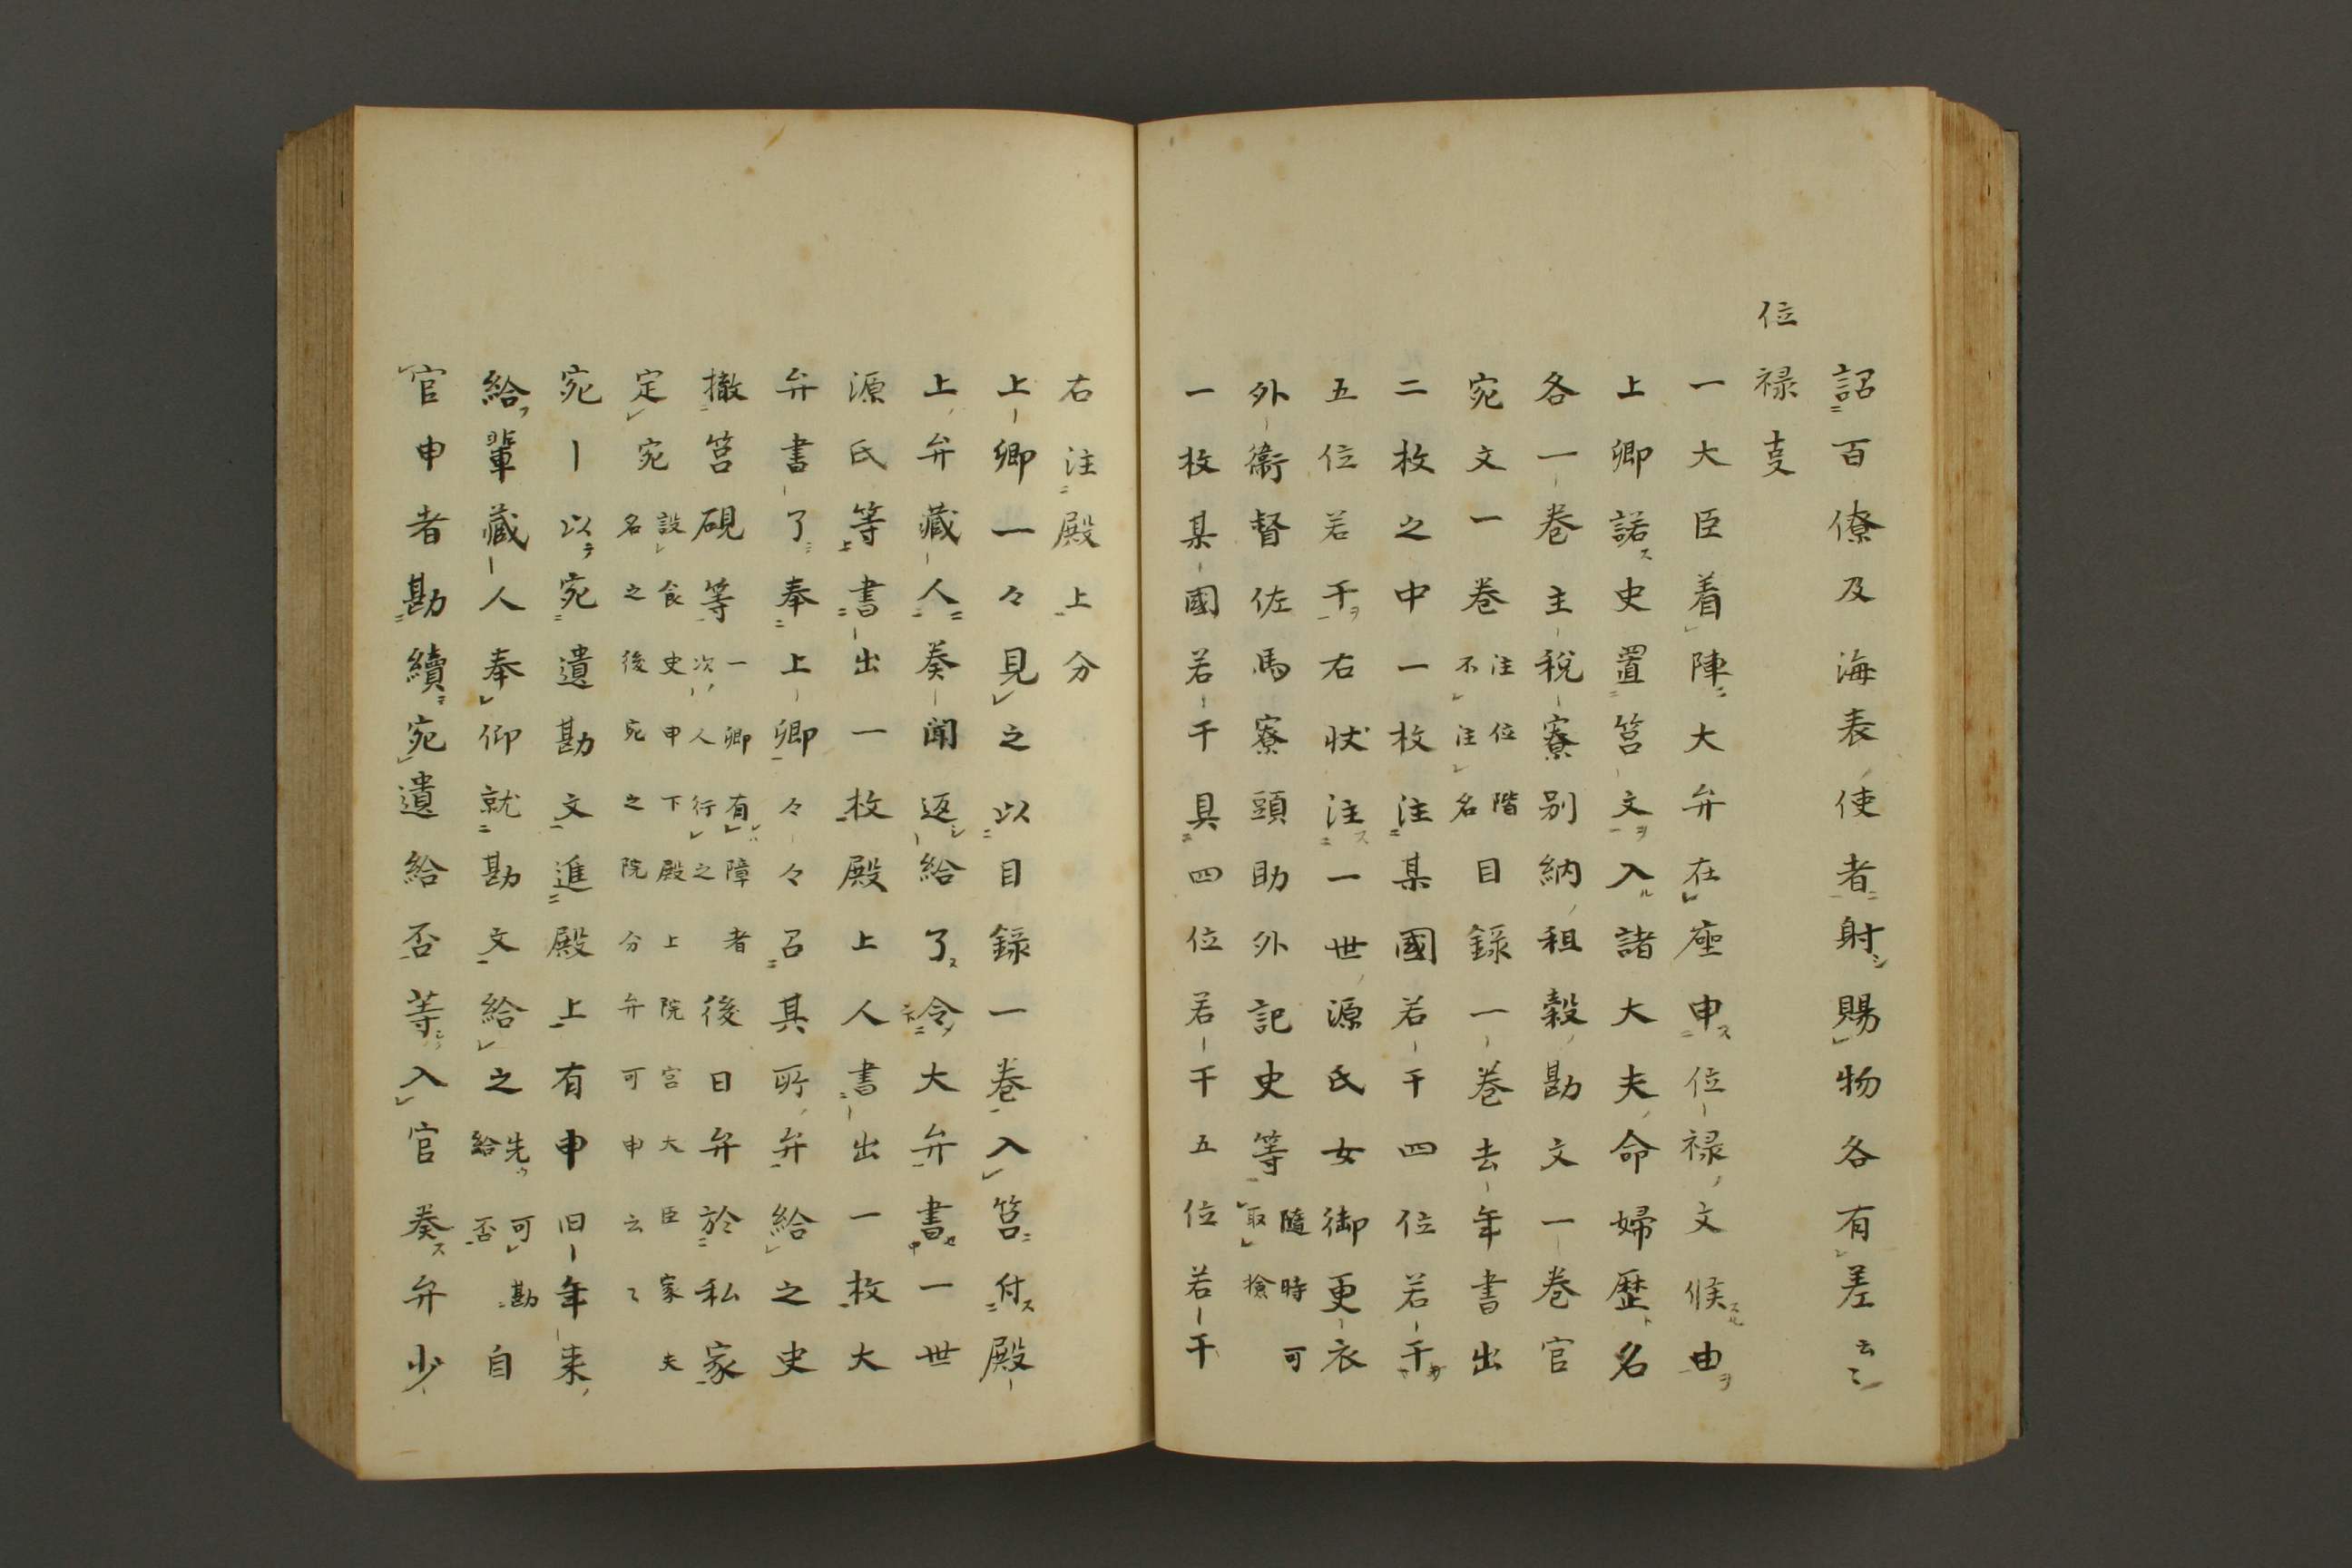 詔百僚及海表使者射賜物各有差云〻
位禄支
一大臣着陣大弁在座申位禄文候由
上卿諾史置筥文入諸大夫命婦歴名
各一巻主税寮別納租穀勘文一巻官
宛文一巻注位階不注名目録一巻去年書出
二枚之中一枚注某國若干四位若干
五位若干右状注一世源氏女御更衣
外衛督佐馬寮頭助外記史等隨時可取捡
一枚某國若干具四位若干五位若干
右注殿上分
上卿一々見之以目録一巻入筥付殿
上弁藏人奏聞返給了令大弁書一世
源氏等書出一枚殿上人書出一枚大
弁書了奉上卿々々召其所弁給之史
撤筥硯等一卿有障者次人行之後日弁於私家
定宛設食史申下殿上院宮大臣家夫名之後宛之院分弁可申云〻
宛以宛遺勘文進殿上有申旧年来
給輩藏人奉仰就勘文給之先可勘給否自
官申者勘續宛遺給否等入官奏弁少